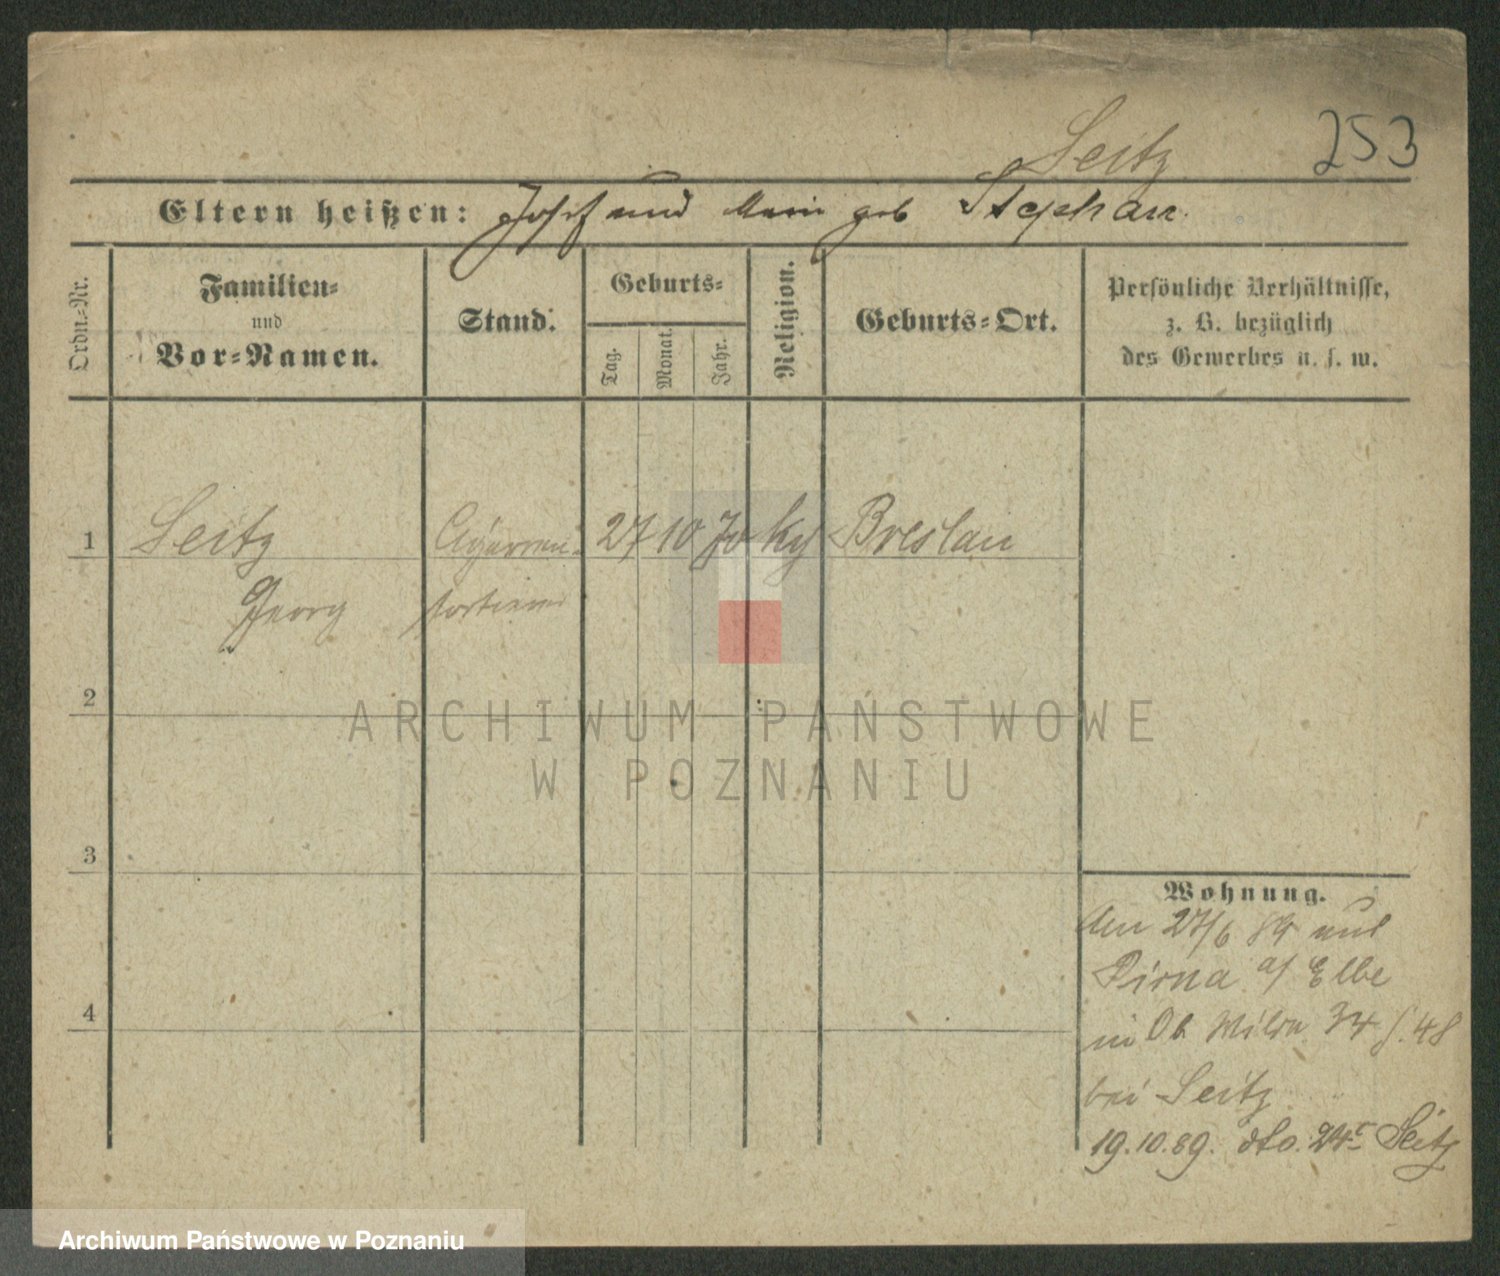 253
Seitz
Eltern heißen: Josef und Marie geb Stephan.
Ordn.-Nr.
Familien-
und
Vor-Namen.
Stand.
Geburts-
Tag.
Monat.
Jahr.
Religion.
Geburts-Ort.
Persönliche Verhältnisse,
z. B. bezüglich
des Gewerbes u. s. w.
1 Seitz Cigarren- 27 10 70 kg Breslau
Georg sortierer
2
3
4
Wohnung.
Am 27/6 89 aus
Pirna a/ Elbe
in Ob Wilda 34 b.
bei Seitz
19.10.89. dto. 24 Seitz
ARCHIWUM PAŃSTWOWE
W POZNANIU
Archiwum Państwowe w Poznaniu